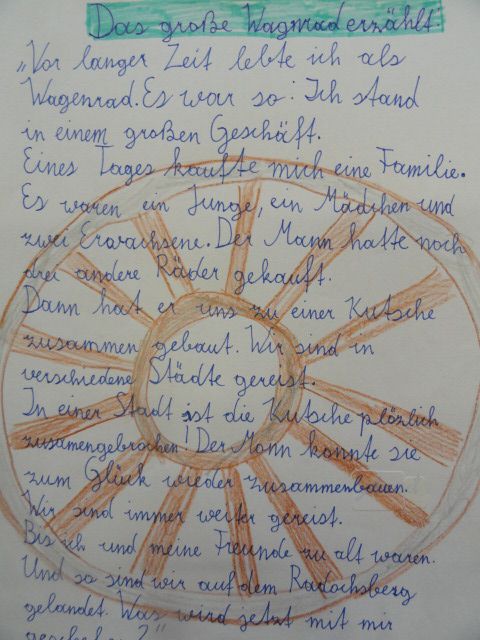 Das große Wagnrad erzählt:
„Vor langer Zeit lebte ich als
Wagenrad. Es war so: Ich stand
in einem großen Geschäft.
Eines Tages kaufte mich eine Familie.
Es waren ein Junge, ein Mädchen und
zwei Erwachsene. Der Mann hatte noch
drei andere Räder gekauft.
Dann hat er uns zu einer Kutsche
zusammen gebaut. Wir sind in
verschiedene Städte gereist.
In einer Stadt ist die Kutsche plözlich
zusamengebrochen! Der Mann konnte sie
zum Glück wieder zusammenbauen.
Wir sind immer weiter gereist.
Bis ich und meine Freunde zu alt waren.
Und so sind wir auf dem Radochsberg
gelandet. Was wird jetzt mit mir
geschehen?"